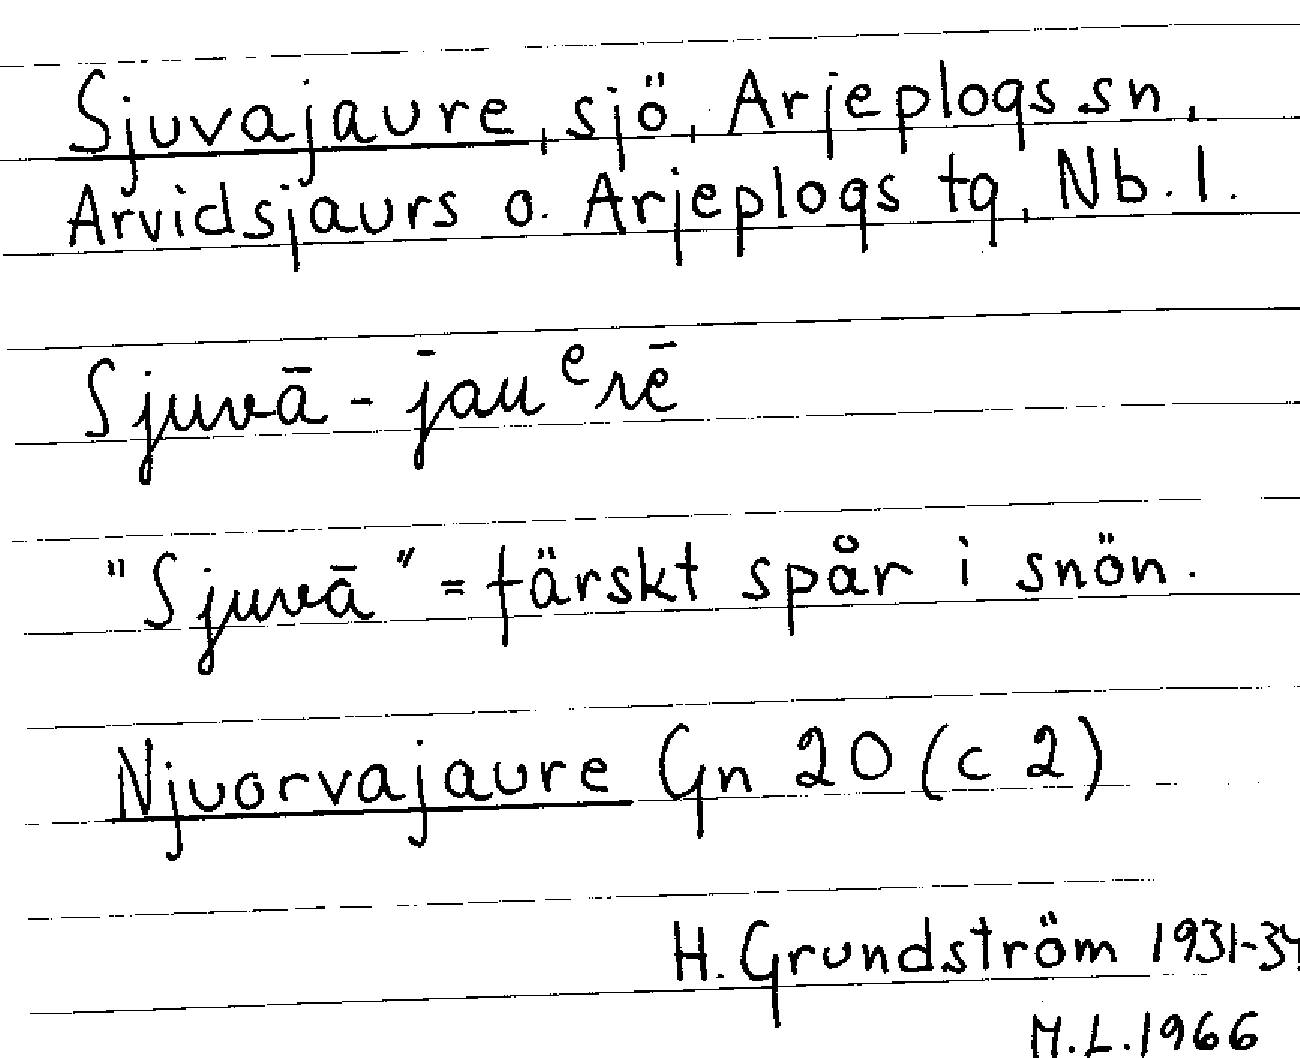 Sjuvajaure, sjö, Arjeplogs sn,
Arvidsjaurs o. Arjeplogs tg, Nb. l.
Sjuvā - jauᵉrē
"Sjuvā" = färskt spår i snön.
Njuorvajaure Gn 20 (c 2)
H. Grundström 1931-34
M.L. 1966